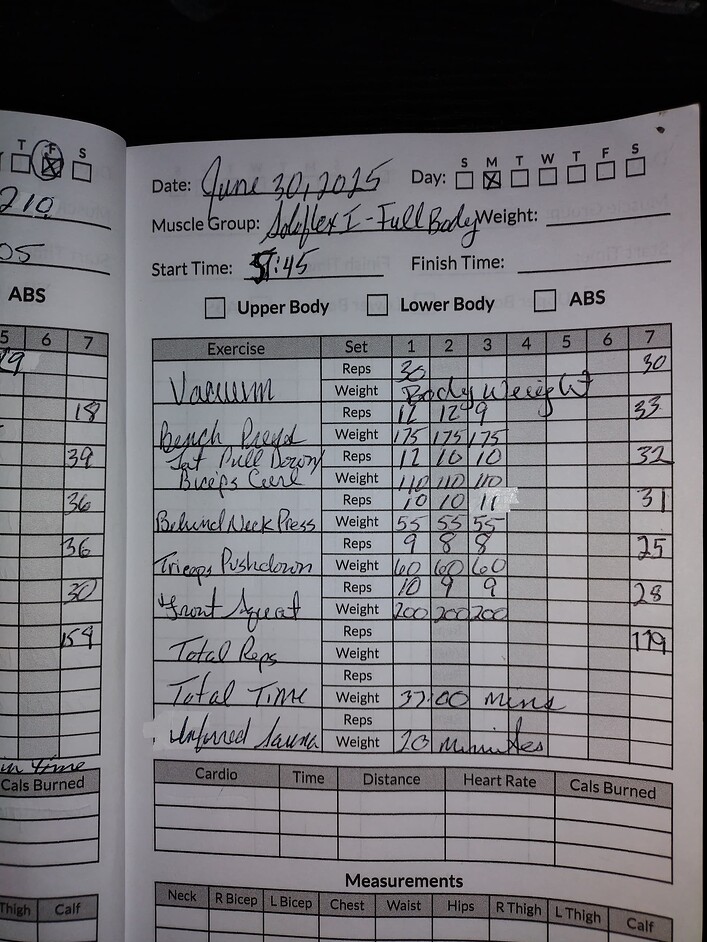 T F S
210
05
ABS
5 6 7
19
18
39
36
36
30
159
in Time
Cals Burned
Thigh Calf
Date: June 30, 2025 Day: S M T W T F S
Muscle Group: Soloflex I - Full Body Weight:
Start Time: :45 Finish Time:
Upper Body Lower Body ABS
Exercise Set 1 2 3 4 5 6 7
Reps 30 30
Vacuum Weight Body Weight
Reps 12 12 9 33
Bench Weight 175 175 175
Lat Pull Down/ Reps 12 10 10 32
Biceps Curl Weight 110 110 110
Reps 10 10 11 31
Behind Neck Press Weight 55 55 55
Reps 9 8 8 25
Triceps Pushdown Weight 60 60 60
Reps 10 9 9 28
Front Squat Weight 200 200 200
Reps 179
Total Reps Weight
Reps
Total Time Weight 37:00 mins
Reps
Infurred Sauna Weight 20 minutes
Cardio Time Distance Heart Rate Cals Burned
Measurements
Neck R Bicep L Bicep Chest Waist Hips R Thigh L Thigh Calf